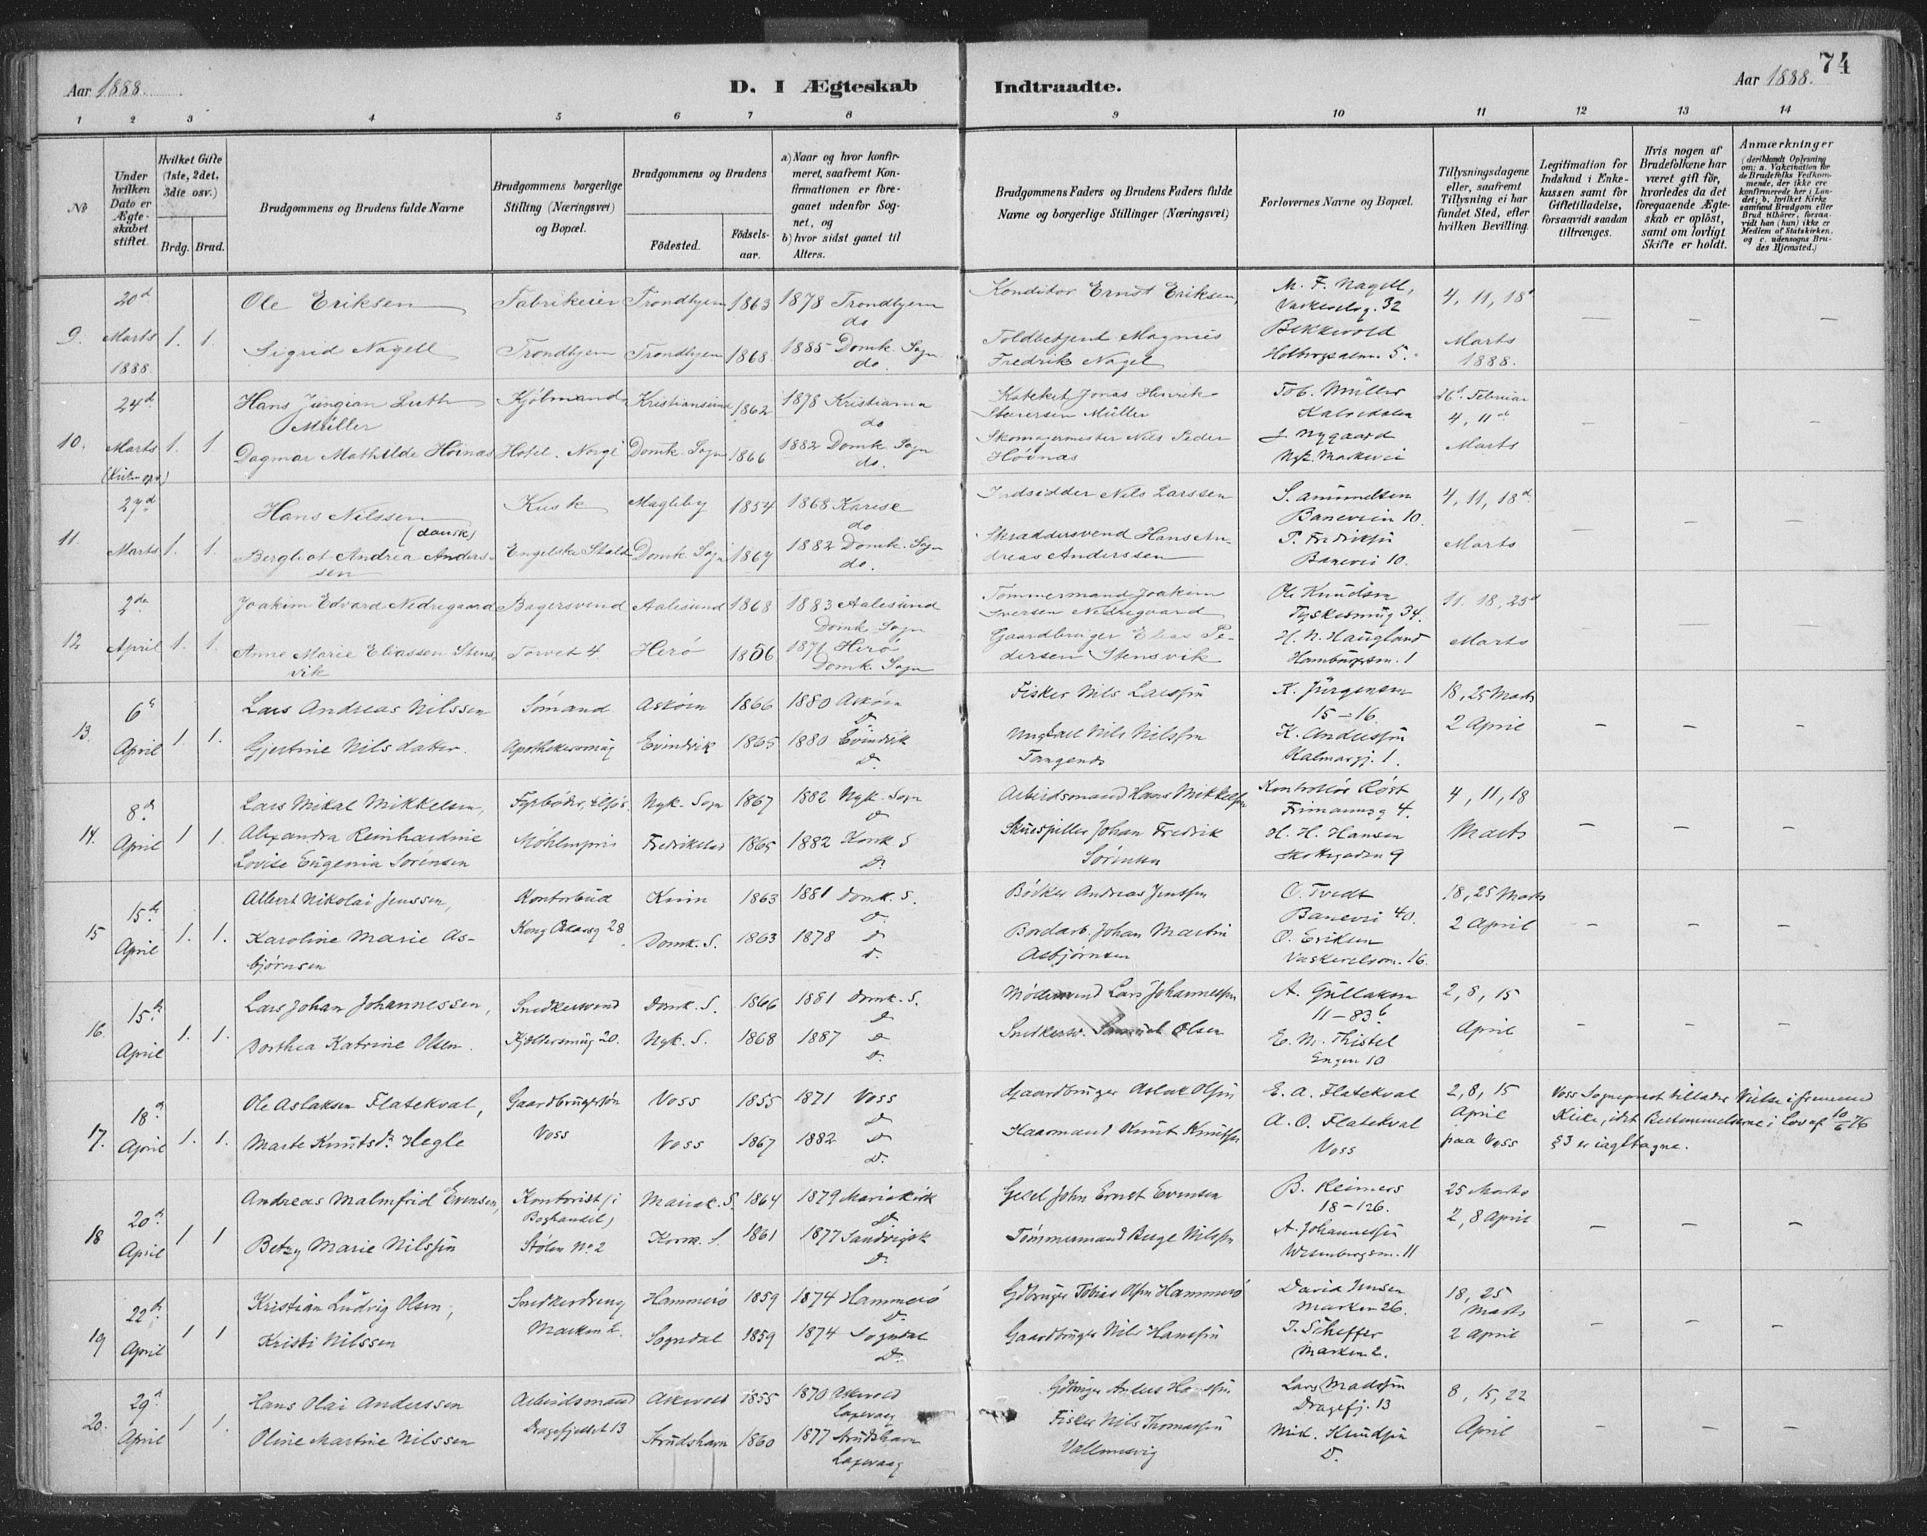 Aar 1888.
D. I Ægteskab
Indtraadte.
Aar 1888.
74
1 2 3 4 5 6 7 8 9 10 11 12 13 14
No
Under hvilken Dato er Ægteskabet stiftet.
Hvilket Gifte (1ste, 2det, 3die osv.)
Brdg. Brud.
Brudgommens og Brudens fulde Navne
Brudgommens borgerlige Stilling (Næringsvei) og Bopæl.
Brudgommens og Brudens
Födested.
Födselsaar.
a) Naar og hvor konfirmeret, saafremt Konfirmationen er foregaaet udenfor Sognet, og
b) hvor sidst gaaet til Alters.
Brudgommens Faders og Brudens Faders fulde Navne og borgerlige Stillinger (Næringsvei)
Forlovernes Navne og Bopæl.
Tillysningsdagene eller, saafremt Tillysning ei har fundet Sted, efter hvilken Bevilling.
Legitimation for Indskud i Enkekassen samt for Giftetilladelse, forsaavidt saadan tiltrænges.
Hvis nogen af Brudefolkene har været gift för, hvorledes da det foregaaende Ægteskab er oplöst, samt om lovligt Skifte er holdt.
Anmærkninger
(deriblandt Oplysning om: a. Vakcination for de Brudefolks Vedkommende, der ikke ere konfirmerede her i Landet; b. hvilket Kirkesamfund Brudgom eller Brud tilhörer, forsaavidt han (hun) ikke er Medlem af Statskirken, og c. udensogns Brudes Hjemsted.)
9. 20d Marts 1888. 1. 1.
Ole Eriksen Fabrikeier Trondhjem 1863 1878 Trondhjem do Konditor Ernst Eriksen, M. F. Nagell, 32 4, 11, 18d
Sigrid Nagell Trondhjem Trondhjem 1868. 1885 Domk. Sogn do. Toldbetjent Magnus Fredrik Nagel Bekkevold Holbergsalm. 5. Marts 1888.
10. 24d Marts 1. 1
Hans Jürgian Luth Müller Kjöbmand Kristiansund 1862 1878 Kristiania do Kateket Jonas Henrik Müller Tob. Müller Kalvedalen Februar 4, 11d
Dagmar Mathilde Höinæs Hotel Norge Domk. Sogn 1866 1882 Domk. Sogn do. Skomagermester Nils Peder Höinæs J Nygaard Marts
11. 27d Marts 1. 1.
Hans Nilssen (dansk) Kusk Magleby 1854 1868 Karise do Indsidder Nils Larssen S. Amundsen Baneveien 10. 4, 11, 18d
Bergliot Andrea Anderssen Engelske Stald Domk. Sogn 1864 1882 Domk. Sogn do. Skræddersvend Hans Andreas Anderssen P. Fredriksen Banevei 10. Marts
12 2de April 1. 1.
Joakim Edvard Nedregaard Bagersvend Aalesund 1868 1883 Aalesund Domk. Sogn Tömmermand Joakim Iversen Nedregaard Ole Knudsen Tyskesmug 34. 11. 18, 25d
Anne Marie Eliassen Stensvik Torvet 4 Herö 1856 1871 Herö Domk. Sogn Gaardbruger Elias Pedersen Stensvik H. N. Haugland Hamburgsm. 1 Marts
13. 6d April 1. 1.
Lars Andreas Nilssen Sömand Asköen 1866 1880 Asköen D. Fisker Nils Larssen K. Jürgensen 15-16. 18, 25 Marts
Gjertine Nilsdatter. Apothekersmug Evindvik 1865 1880 Evindvik D. Nils Nilssen K. Anderssen Kalmargj. 1. 2 April
14. 8d April 1 1.
Lars Mikal Mikkelsen, Fyrböder Nyk. Sogn 1867 1882 Nyk. Sogn D Arbeidsmand Hans Mikkelsen Kontrollör Röst 4. 4, 11, 18
Alexandra Reinhardine Lovise Eugenia Sörensen Möhlenpris Fredrikstad 1865 1882 Kork. S D. Skuespiller Johan Fredrik Sörensen H. H. Hansen Skottegaden 9 Marts
15 15de April 1. 1.
Albert Nikolai Jenssen, Kontorbud 1863 1881 Domk. S. D. Bödker Andreas Jenssen O. Tvedt Banevei 40. 18, 25 Marts
Karoline Marie Asbjörnsen Kong Oskarsg 28 Domk. S. 1863 1878 D. D. Bordarb. Johan Martin Asbjörnsen O. Eriksen 16. 2 April
16. 15de April 1. 1.
Lars Johan Johannessen, Snedkersvend Domk. S. 1866 1881 Domk. S. D Lars Johannessen A. Gullaksen 11-83b 2, 8, 15
Dorthea Katrine Olsen. 20. Nyk. S. 1868 1887 D D. Snedkersv. Samuel Olsen E. M. Tistel Engen 10 April
17. 18d April 1. 1.
Ole Aslaksen Flatekval, Gaardbrugersön Voss 1855 1871 Voss D Gaardbruger Aslak Olsen E. A. Flatekval 2, 8, 15 April Voss Sogneprest tillader Vielse i fremmed
Marte Knutsdr. Hegle Voss Voss 1867 1882 D D. Haarmand Knut Knutsen A. O. Flatekval Voss paa Voss Kirke, idet Bestemmelserne i Lov af 10/6 76 § 3 er iagttagne.
18 20de April 1 1
Andreas Malmfrid Evensen, Kontorist (i Boghandel) Mariak. S. 1864 1879 Mariakirk D John Ernst Evensen B. Reimers 18-126. 25 Marts
Betzy Marie Nilssen Stölen No 2 Kork. S 1861 1877 Sandvigsk D. Tömmermand Berge Nilssen A. Johannessen Wesenbergsm. 11 2, 8 April
19 22de April 1 1
Kristian Ludvig Olsen, Snedkerdreng Hammerö 1859 1874 Hammerö D. Gdbruger Tobias Olsen Hammerö David Jensen Marken 26. 18, 25 Marts
Kristi Nilssen Marken 2. Sogndal 1859 1874 Sogndal D. Gaardbruger Nils Hanssen J. Scheffer Marken 2. 2 April
20. 29d April 1 1
Hans Olai Anderssen Arbeidsmand Askevold 1855 1870 Askevold Laxevaag Gdbruger Anders Lars Madssen Dragefj. 13 8, 15, 22
Oline Martine Nilssen Dragefjeldet 13 Strudshavn 1860 1877 Strudshavn Laxevaag Fisker Nils Thomassen Mik. Knudsen D. April